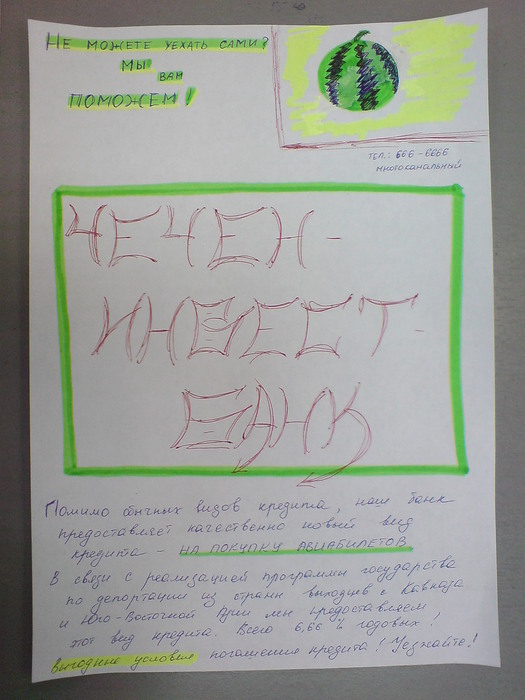 НЕ МОЖЕТЕ УЕХАТЬ САМИ?
МЫ
ВАМ
ПОМОЖЕМ!
ТЕЛ.: 666-6666
многоканальный
ЧЕЧЕН-
ИНВЕСТ-
БАНК
Помимо обычных видов кредита, наш банк
предоставляет качественно новый вид
кредита - НА ПОКУПКУ АВИАБИЛЕТОВ
В связи с реализацией программы государства
по депортации из страны выходцев с Кавказа
и Юго-Восточной Азии мы предоставляем
этот вид кредита. Всего 6,66 % годовых!
Выгодные условия погашения кредита! Уезжайте!